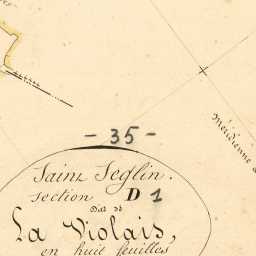 - 35 -
Méridienne
Saint Seglin.
Section D 1
Dite de
La Violais,
en huit feuilles